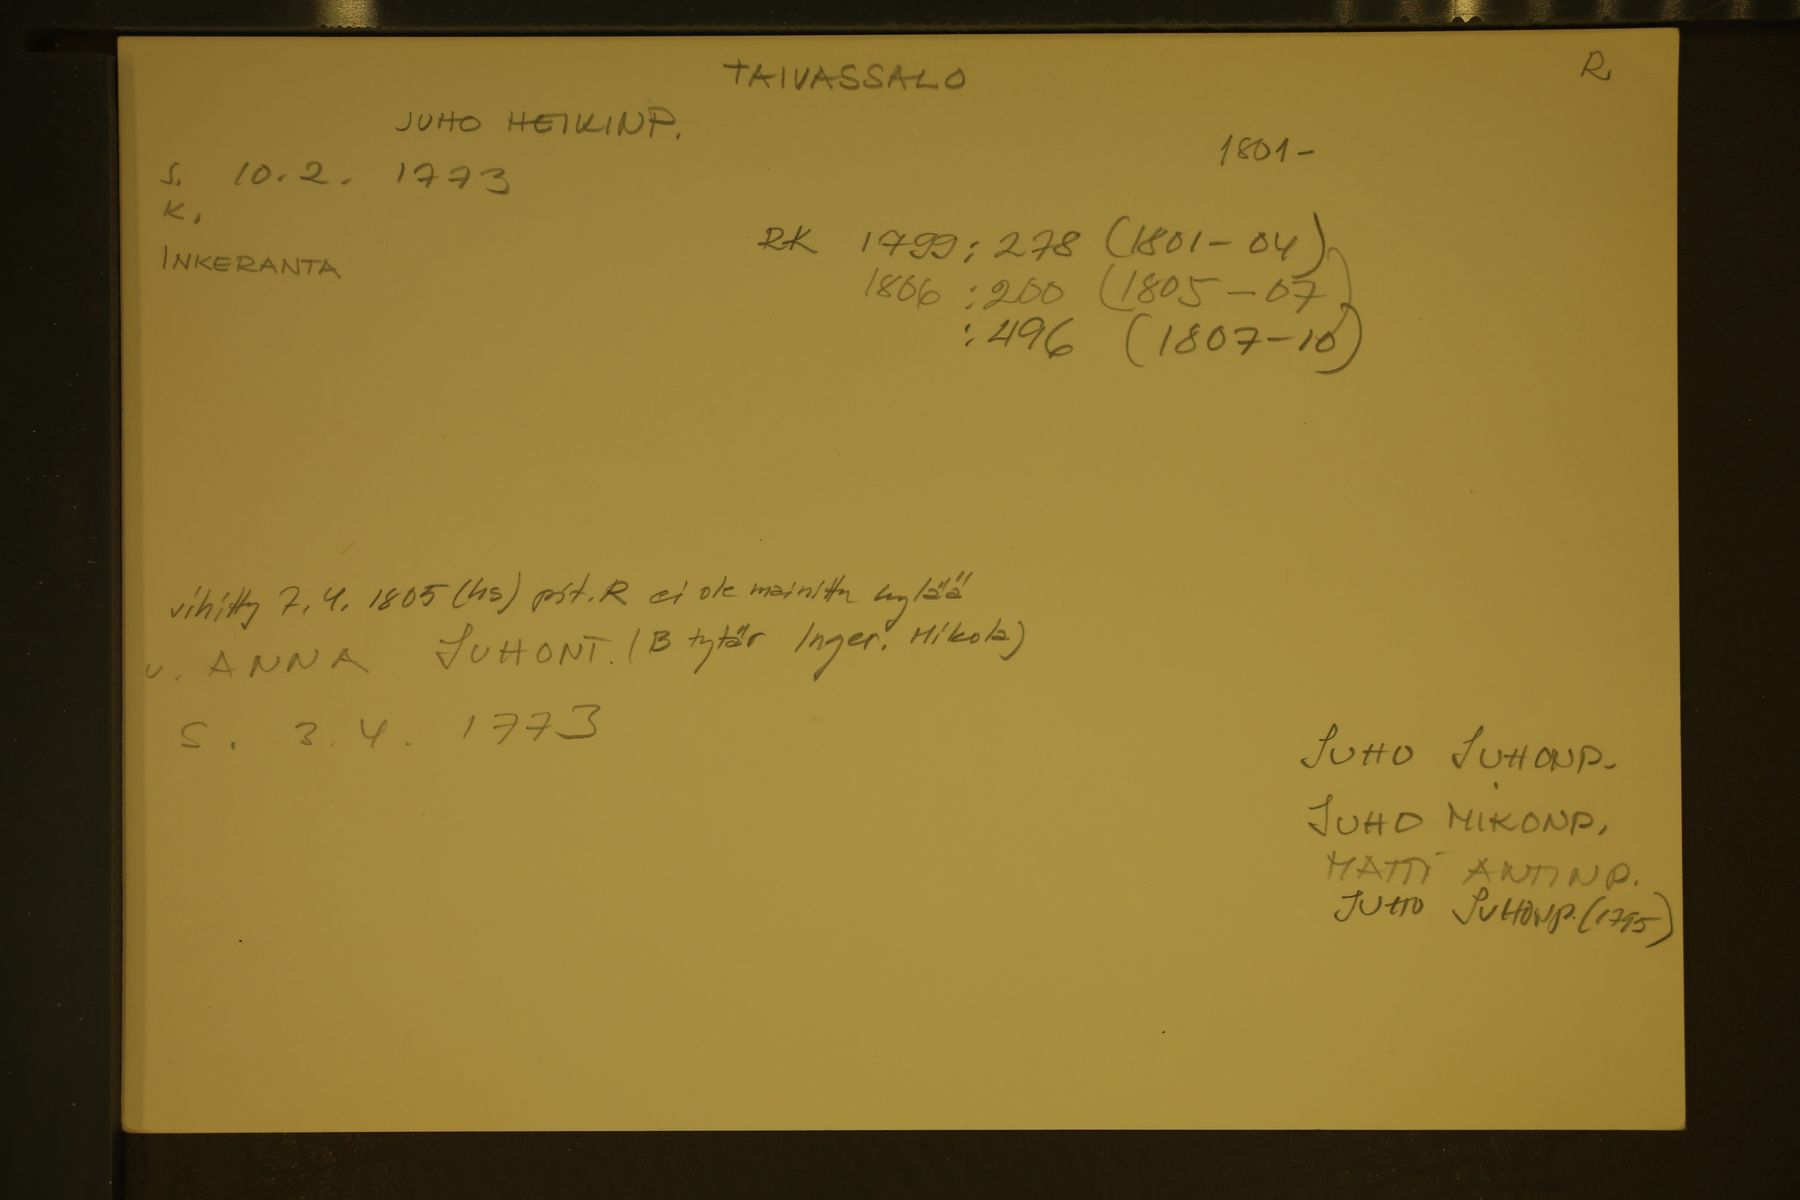 TAIVASSALO
R
JUHO HEIKINP.
1801-
S. 10.2. 1773
K.
INKERANTA
RK 1799: 278 (1801-04)
1806 : 200 (1805-07)
: 496 (1807-10)
vihitty 7.4. 1805 (hs) pst. R ei ole mainittu kylää
v. ANNA JUHONT. (B tytär Inger. Mikola)
S. 3.4. 1773
JUHO JUHONP.
JUHO MIKONP.
MATTI ANTINP.
JUHO JUHONP. (1795)